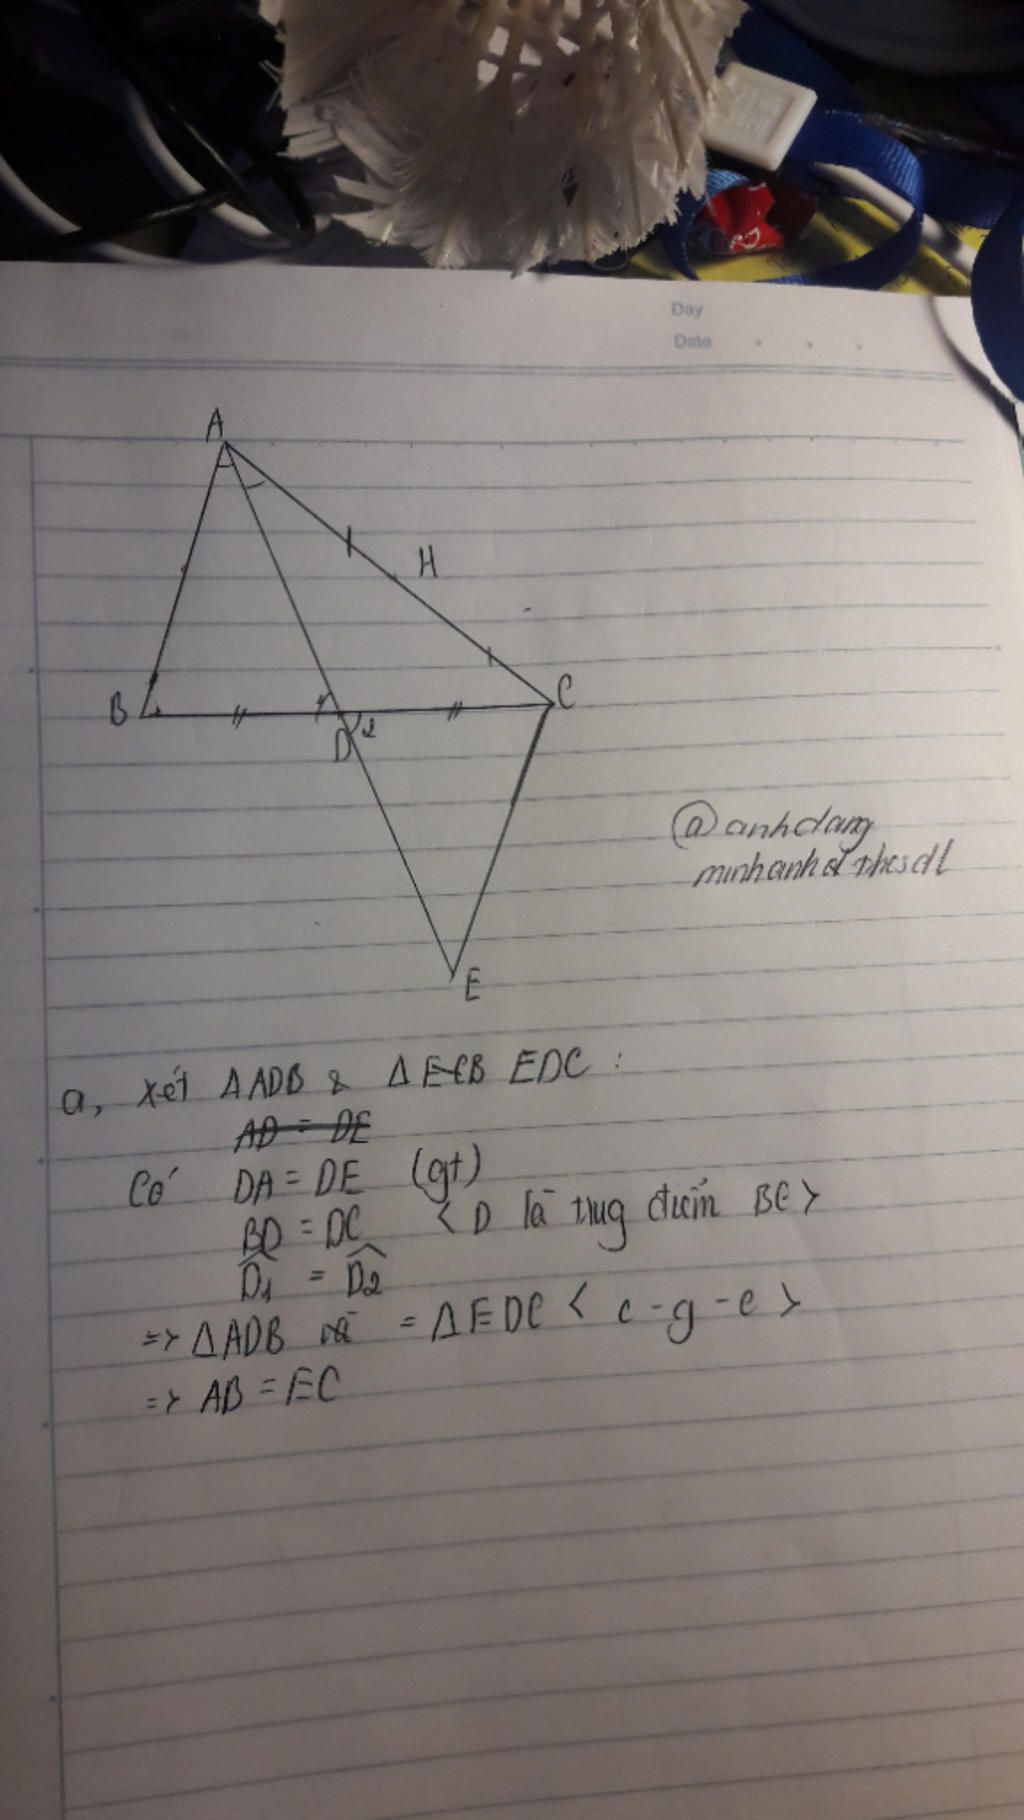 Day
Date
A
H
B
C
1
D
2
E
@anhdang
minhanh
a, Xét ΔADB & ΔECB EDC :
AD = DE
Có DA = DE (gt)
BD = DC < D là trug điểm BC >
D̂1 = D̂2
=> ΔADB và = ΔEDC < c - g - c >
=> AB = EC